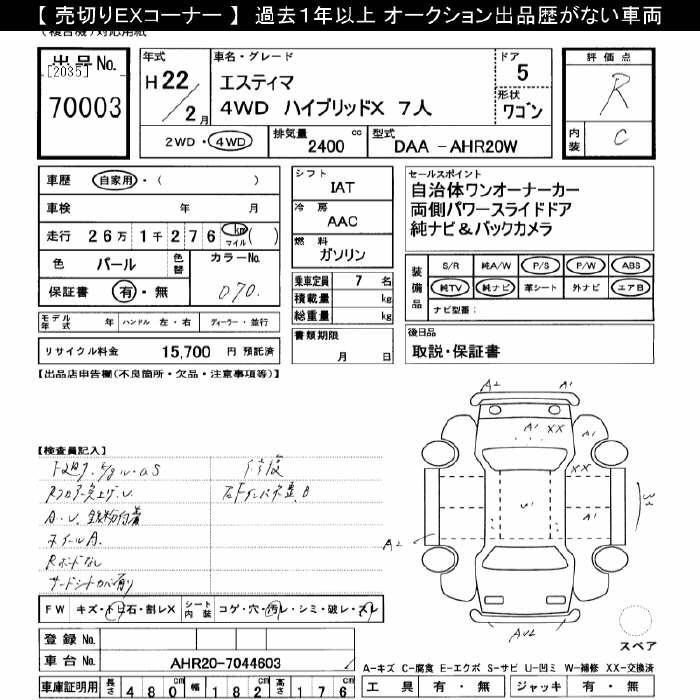 【 売切りEXコーナー 】 過去１年以上 オークション出品歴がない車両
出品No.
[2035]
70003
年式
H22/2月
車名・グレード
エスティマ
4WD ハイブリッドX 7人
ドア
5
形状
ワゴン
評価点
R
内装
C
2WD・4WD
排気量 2400 cc
型式 DAA -AHR20W
車歴 自家用・( )
車検 年 月
走行 26万1千276 km マイル( )
色 パール 色替 カラーNo.
070.
保証書 有・無
モデル年式 年 ハンドル 左・右 ディーラー・並行
リサイクル料金 15,700 円 預託済
シフト
IAT
冷房
AAC
燃料
ガソリン
乗車定員 7 名
積載量 kg
総重量 kg
書類期限
月 日
セールスポイント
自治体ワンオーナーカー
両側パワースライドドア
純ナビ&バックカメラ
装備品
S/R 純A/W P/S P/W ABS
純TV 純ナビ 革シート 外ナビ エアB
ナビ型番:
後日品
取説・保証書
【出品店申告欄(不良箇所・欠品・注意事項等)】
【検査員記入】
A.U.
ホイールA.
Rボードなし
A2 A1
A1 XX A1
XX
U1 A1
A2 A1
AU2
FW キズ・トビ石・割レX
シート内装 コゲ・穴・汚レ・シミ・破レ・スレ
登録No.
車台No. AHR20-7044603
車庫証明用 長さ 480 cm 幅 182 cm 高さ 176 cm
スペア
A-キズ C-腐食 E-エクボ S-サビ U-凹ミ W-補修 XX-交換済
工具 有・無 ジャッキ 有・無